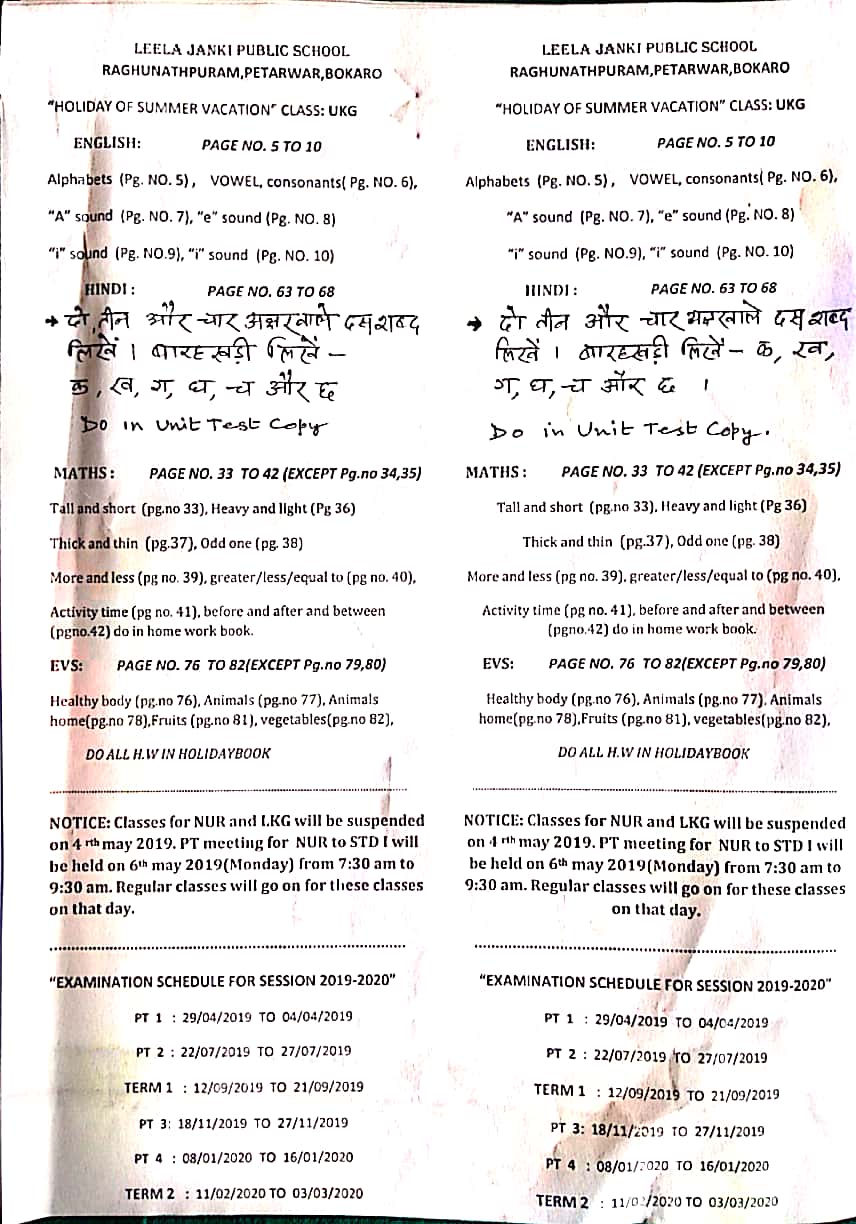 LEELA JANKI PUBLIC SCHOOL
RAGHUNATHPURAM,PETARWAR,BOKARO
"HOLIDAY OF SUMMER VACATION" CLASS: UKG
ENGLISH: PAGE NO. 5 TO 10
Alphabets (Pg. NO. 5), VOWEL, consonants( Pg. NO. 6),
"A" sound (Pg. NO. 7), "e" sound (Pg. NO. 8)
"i" sound (Pg. NO.9), "i" sound (Pg. NO. 10)
HINDI : PAGE NO. 63 TO 68
→ दो, तीन और चार अक्षरवाले दस शब्द
लिखें । बारहखड़ी लिखें –
क, ख, ग, घ, च और छ
Do in Unit Test Copy
MATHS : PAGE NO. 33 TO 42 (EXCEPT Pg.no 34,35)
Tall and short (pg.no 33), Heavy and light (Pg 36)
Thick and thin (pg.37), Odd one (pg. 38)
More and less (pg no. 39), greater/less/equal to (pg no. 40),
Activity time (pg no. 41), before and after and between
(pgno.42) do in home work book.
EVS: PAGE NO. 76 TO 82(EXCEPT Pg.no 79,80)
Healthy body (pg.no 76), Animals (pg.no 77), Animals
home(pg.no 78),Fruits (pg.no 81), vegetables(pg.no 82),
DO ALL H.W IN HOLIDAYBOOK
NOTICE: Classes for NUR and LKG will be suspended
on 4 rth may 2019. PT meeting for NUR to STD I will
be held on 6th may 2019(Monday) from 7:30 am to
9:30 am. Regular classes will go on for these classes
on that day.
"EXAMINATION SCHEDULE FOR SESSION 2019-2020"
PT 1 : 29/04/2019 TO 04/04/2019
PT 2 : 22/07/2019 TO 27/07/2019
TERM 1 : 12/09/2019 TO 21/09/2019
PT 3: 18/11/2019 TO 27/11/2019
PT 4 : 08/01/2020 TO 16/01/2020
TERM 2 : 11/02/2020 TO 03/03/2020
LEELA JANKI PUBLIC SCHOOL
RAGHUNATHPURAM,PETARWAR,BOKARO
"HOLIDAY OF SUMMER VACATION" CLASS: UKG
ENGLISH: PAGE NO. 5 TO 10
Alphabets (Pg. NO. 5), VOWEL, consonants( Pg. NO. 6),
"A" sound (Pg. NO. 7), "e" sound (Pg. NO. 8)
"i" sound (Pg. NO.9), "i" sound (Pg. NO. 10)
HINDI : PAGE NO. 63 TO 68
→ दो तीन और चार अक्षरवाले दस शब्द
लिखें । बारहखड़ी लिखें – क, ख,
ग, घ, च और छ ।
Do in Unit Test Copy.
MATHS : PAGE NO. 33 TO 42 (EXCEPT Pg.no 34,35)
Tall and short (pg.no 33), Heavy and light (Pg 36)
Thick and thin (pg.37), Odd one (pg. 38)
More and less (pg no. 39), greater/less/equal to (pg no. 40),
Activity time (pg no. 41), before and after and between
(pgno.42) do in home work book.
EVS: PAGE NO. 76 TO 82(EXCEPT Pg.no 79,80)
Healthy body (pg.no 76), Animals (pg.no 77), Animals
home(pg.no 78),Fruits (pg.no 81), vegetables(pg.no 82),
DO ALL H.W IN HOLIDAYBOOK
NOTICE: Classes for NUR and LKG will be suspended
on 4 rth may 2019. PT meeting for NUR to STD I will
be held on 6th may 2019(Monday) from 7:30 am to
9:30 am. Regular classes will go on for these classes
on that day.
"EXAMINATION SCHEDULE FOR SESSION 2019-2020"
PT 1 : 29/04/2019 TO 04/04/2019
PT 2 : 22/07/2019 TO 27/07/2019
TERM 1 : 12/09/2019 TO 21/09/2019
PT 3: 18/11/2019 TO 27/11/2019
PT 4 : 08/01/2020 TO 16/01/2020
TERM 2 : 11/02/2020 TO 03/03/2020